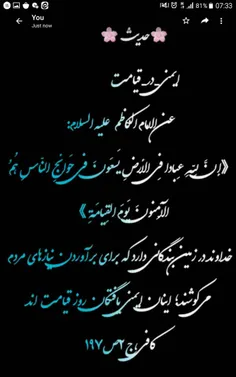 07:33
81%
You
Just now
حدیث
ایمنی_در_قیامت
عن الامام الکاظم علیه السلام:
《إنَّ لِلّهِ عِبادا فِی الأرضِ یَسعَونَ فی حَوائجِ النّاسِ هُمُ
الآمِنونَ یَومَ القِیامَةِ》
خداوند در زمین بندگانی دارد که برای برآوردن نیازهای مردم
می کوشند؛ اینان ایمنی یافتگان روز قیامت اند
کافی، ج۲ص۱۹۷